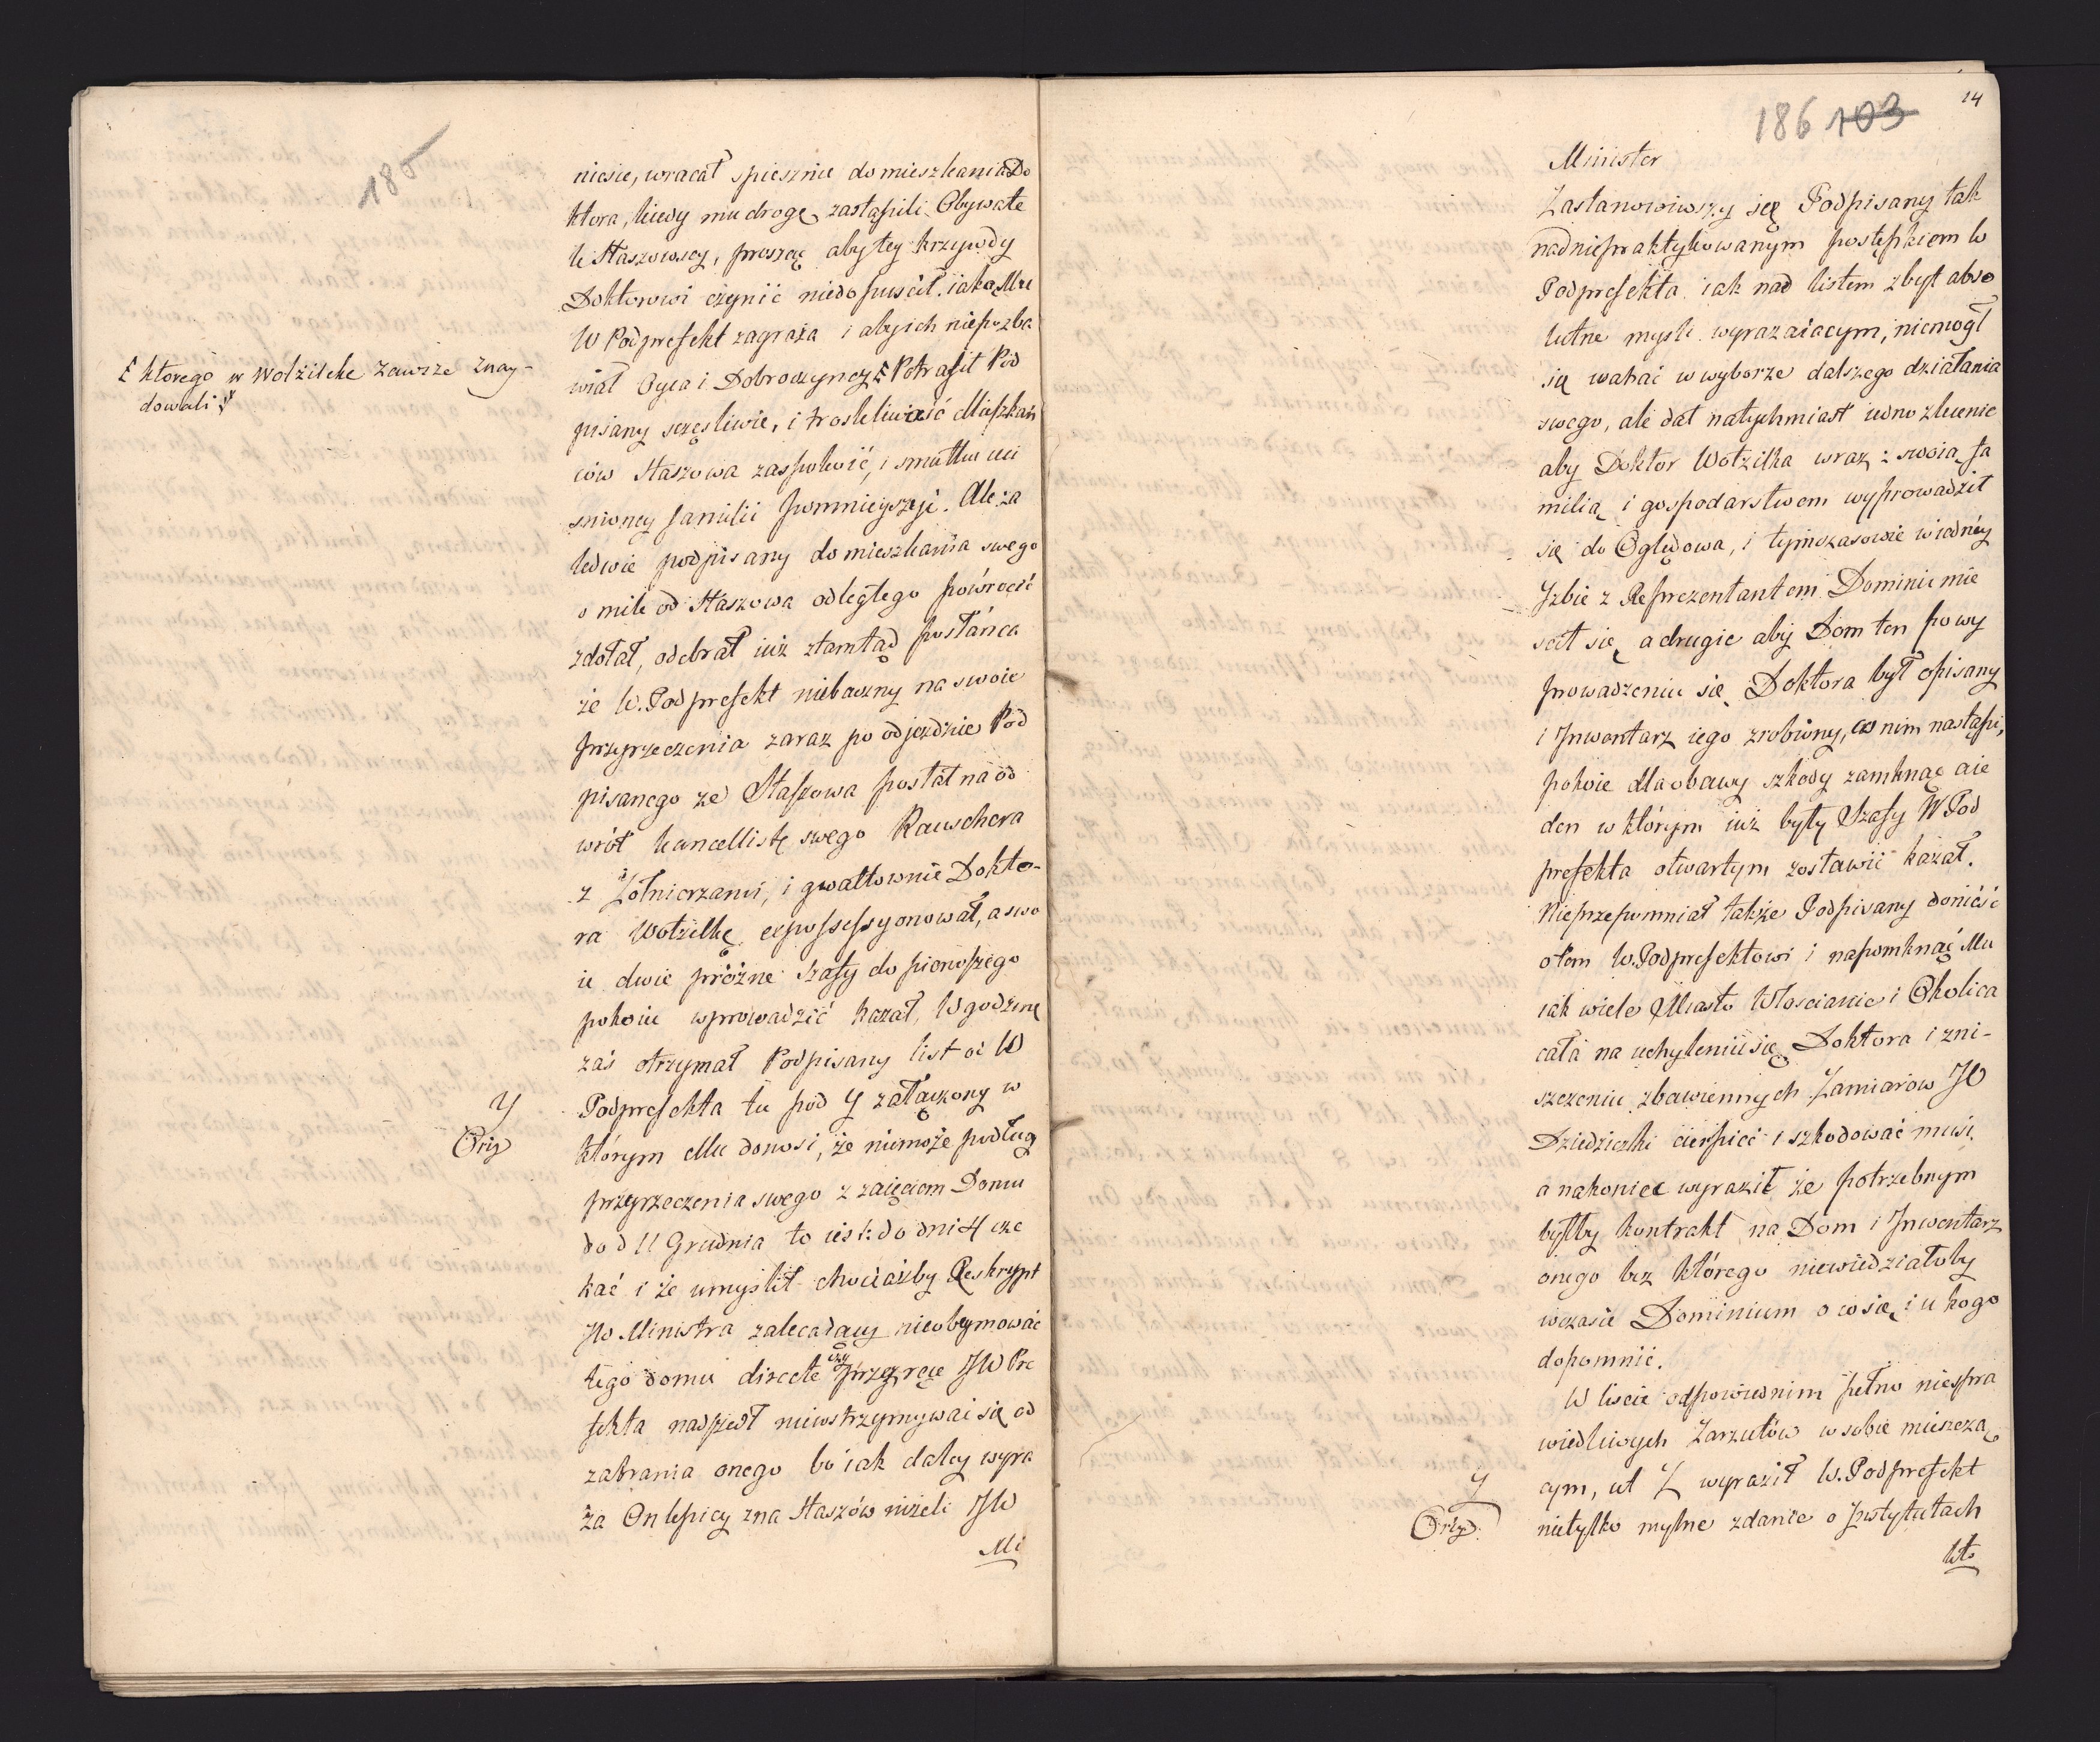 185
niesie, wracał spiesznie do mieszkania Do
ktora, kiedy mu drogę zastąpili Obywate
le Staszowscy, prosząc aby tey krzywdy
Doktorowi czynić niedopuścił. iaką Mu
W Podprefekt zagraża i aby ich niepozba
wiał Oyca i Dobroczyńcy Ɛ Potrafił Pod
Ɛ ktorego w Wolzilche zawsze znay-
dowali.
pisany sczęsliwie, i troskliwość Mieszkań
ców Staszowa zaspokoić, i smutku uci
snioney familii pomnieyszyć. Ale za
ledwie podpisany do mieszkania swego
o mile od Staszowa odległego powrócić
zdołał, odebrał iuż ztamtąd posłańca
że W. Podprefekt niebaczny na swoie
przyrzeczenia zaraz po odjezdzie Pod
pisanego ze Staszowa posłał na od
wrót kancellistę swego Rauschera
z Żołnierzami, i gwałtownie Dokto-
ra Wotzilkę expossessyonował, a swo
ie dwie próżne szafy do pierwszego
pokoiu wprowadzić kazał, W godzinę
zaś otrzymał Podpisany list od W
Podprefekta tu pod Y załączony w
Y
Oryg
którym Mu donosi, że niemoże podług
przyrzeczenia swego z zaięciem Domu
do d 11 Grudnia to iest: do dni 4 cze
kać i że umyslił chociażby Reskrypt
JW Ministra zalecaiący nieobeymować
tego domu directe czy przez ręce JW Pre
fekta nadszedł niewstrzymywać się od
zabrania onego bo iak daley wyra
ża On lepiey zna Staszów niżeli JW
Mi
186 103
14
Minister
Zastanowiwszy się Podpisany tak
nad niepraktykowanym postępkiem W
Podprefekta iak nad listem zbyt abso
lutne mysli wyrazaiącym, niemogł
się wahać w wyborze dalszego działania
swego, ale dał natychmiast iedno zlecenie
aby Doktor Wotzilka wraz z swoią fa
milią i gospodarstwem wyprowadził
się do Oględowa, i tymczasowie w iednéy
Jzbie z Reprezentantem Dominii mie
scił się, a drugie aby Dom ten po wy
prowadzeniu się Doktora był opisany
i Jnwentarz iego zrobiony, co nim nastąpi,
pokoie dla obawy szkody zamknąć a ie
den w którym iuż były Szafy W Pod
prefekta otwartym zostawić kazał.
Nieprzepomniał także Podpisany donieść
o tem W. Podprefektowi i napomknąć Mu
iak wiele Miasto Włoscianie i Okolica
cała na uchyleniu się Doktora i zni-
szczeniu zbawiennych Zamiarow JW
Dziedziczki cierpieć i szkodować musi,
a nakoniec wyraził że potrzebnym
byłby kontrakt na Dom i Jnwentarz
onego bez którego niewiedziałoby
wczasie Dominium o co się i u kogo
dopomnić.
W liscie odpowiednim pełno niespra
wiedliwych Zarzutów w sobie mieszczą
cym, ut Z wyraził W. Podprefekt
Z
Oryg:
nietylko mylne zdanie o Jnstytutach